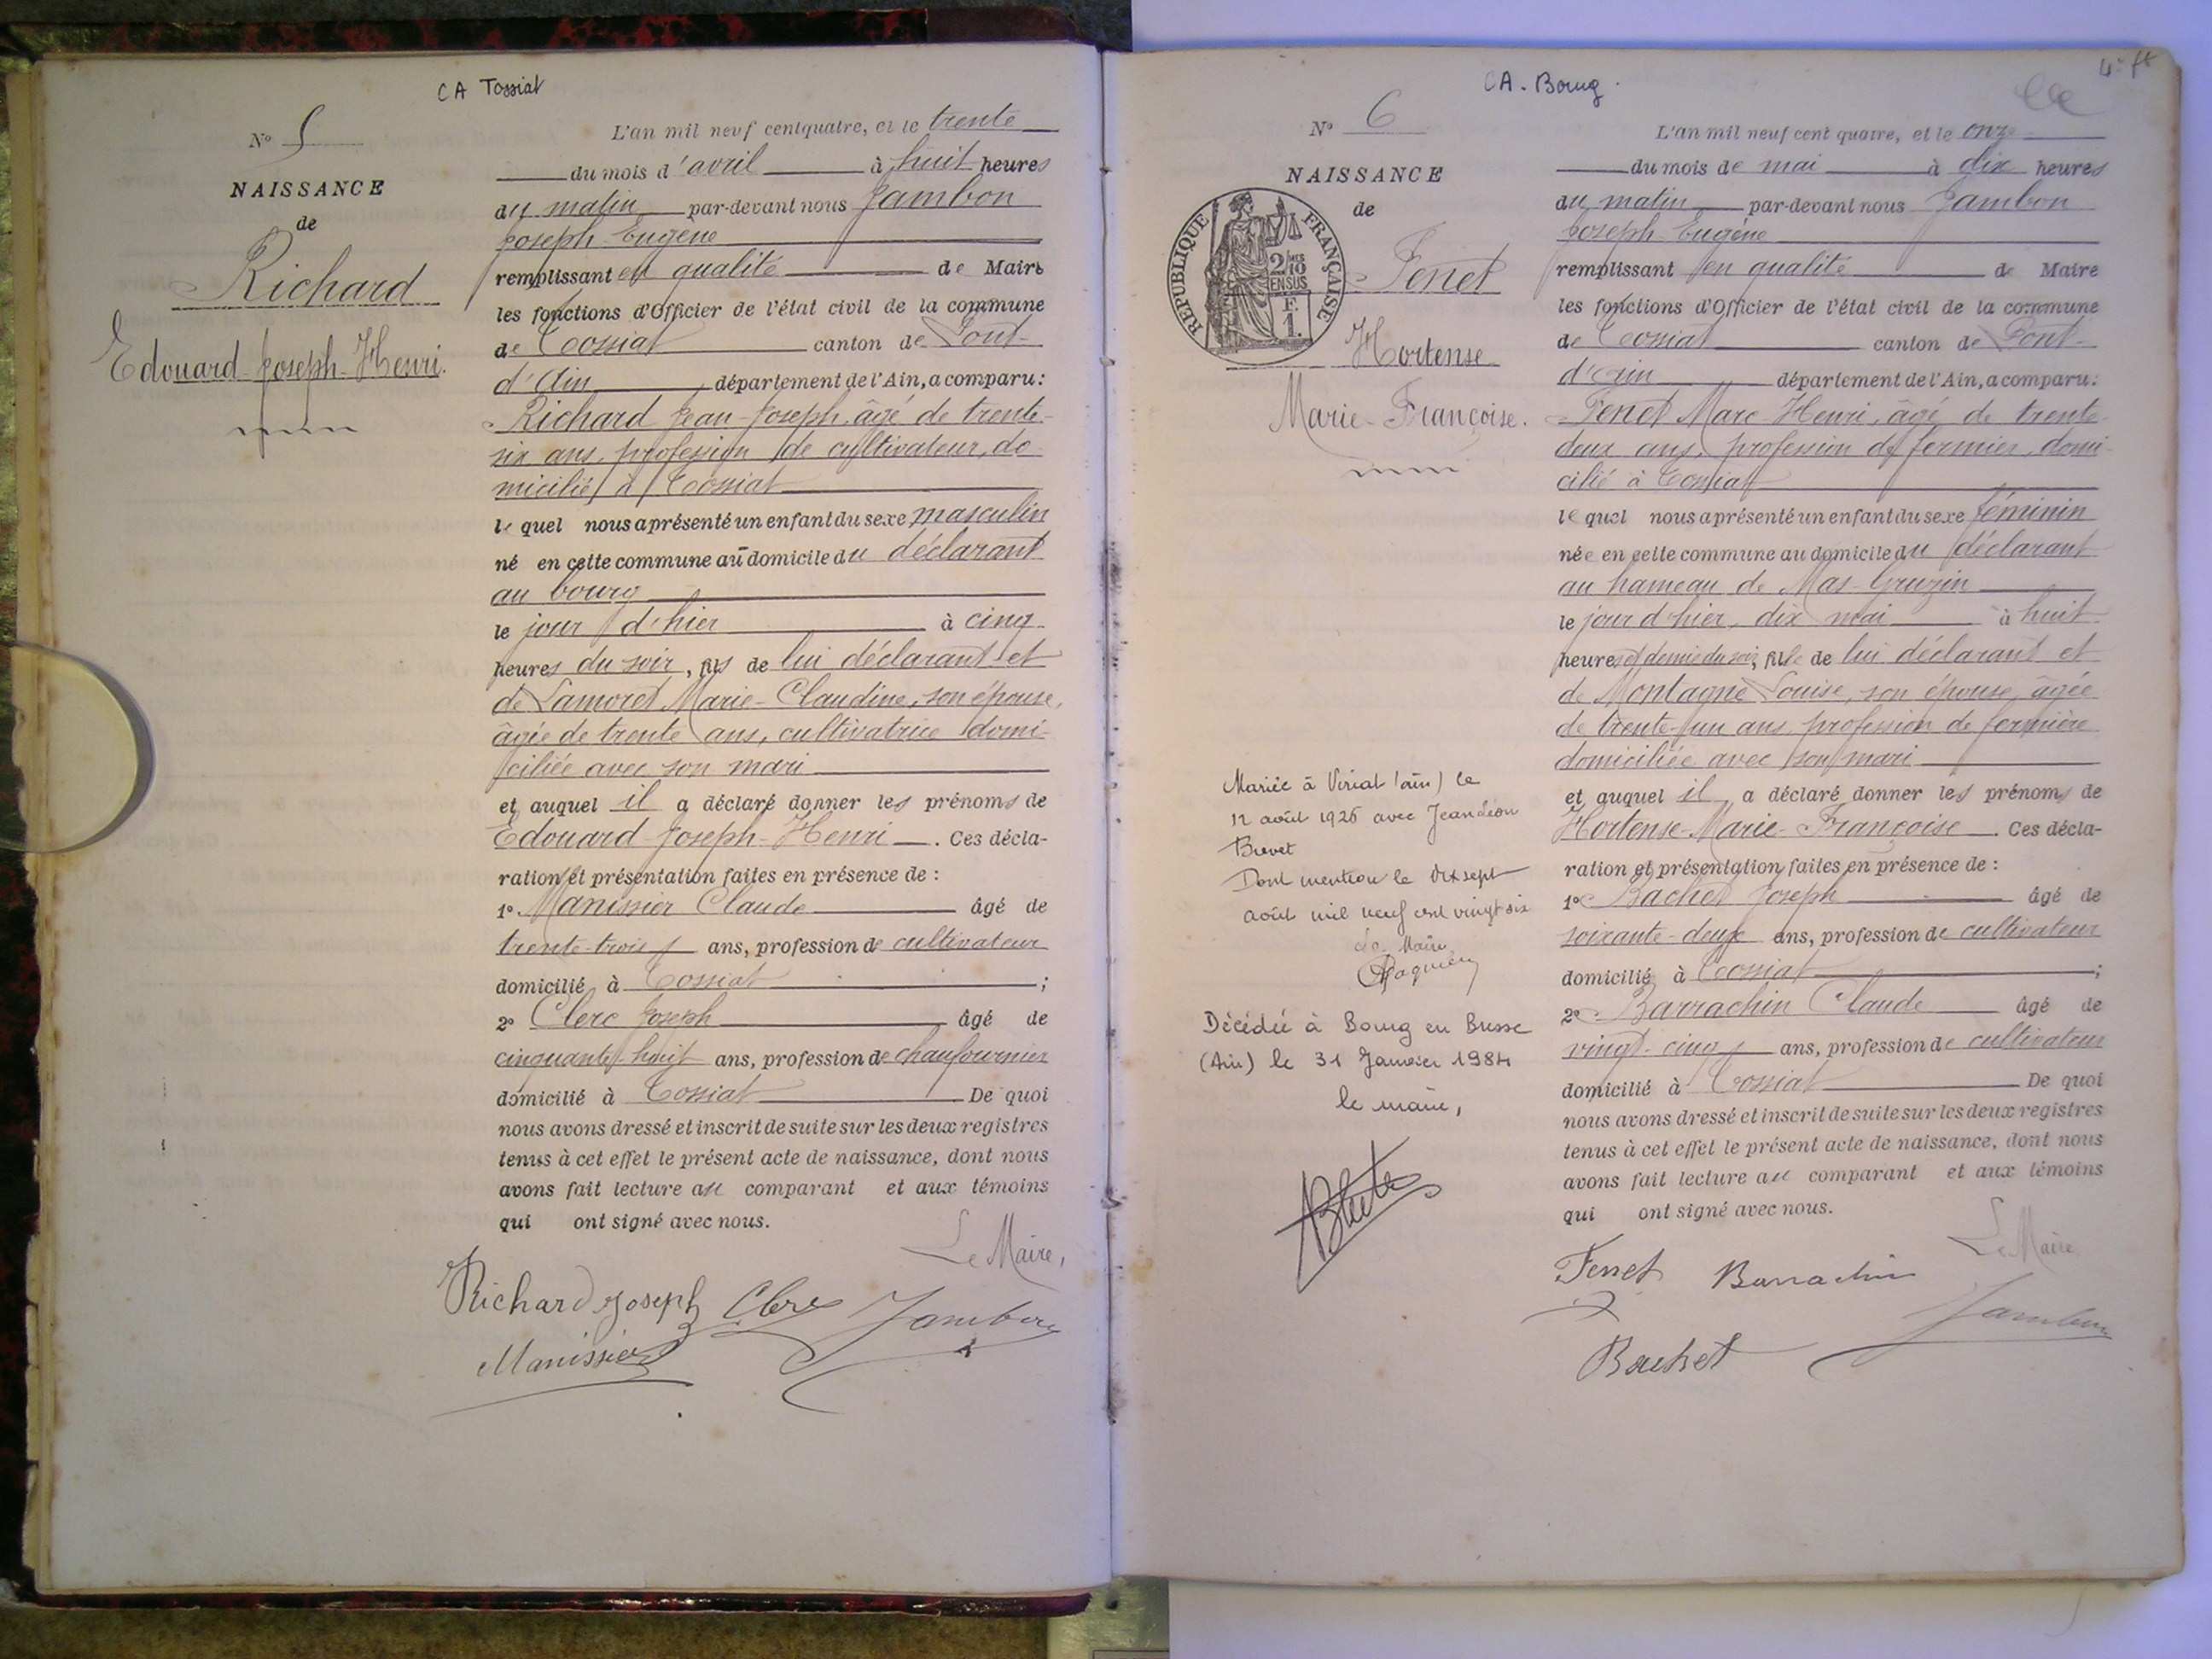 CA Tossiat
N° 5
NAISSANCE
de
Richard
Edouard-Joseph-Henri.
L'an mil neuf cent quatre, et le trente
du mois d'avril à huit heures
du matin par-devant nous Jambon
Joseph Eugène
remplissant en qualité de Maire
les fonctions d'Officier de l'état civil de la commune
de Tossiat canton de Pont-
d'Ain département de l'Ain, a comparu :
Richard Jean-Joseph, âgé de trente-
six ans, profession de cultivateur, do-
micilié à Tossiat
le quel nous a présenté un enfant du sexe masculin
né en cette commune au domicile du déclarant
au bourg
le jour d'hier à cinq
heures du soir, fils de lui déclarant et
de Lamoret Marie-Claudine, son épouse,
âgée de trente ans, cultivatrice domi-
ciliée avec son mari
et auquel il a déclaré donner les prénoms de
Edouard-Joseph-Henri. Ces décla-
ration et présentation faites en présence de :
1° Manissier Claude âgé de
trente-trois ans, profession de cultivateur
domicilié à Tossiat ;
2° Clerc Joseph âgé de
cinquante-huit ans, profession de chaufournier
domicilié à Tossiat De quoi
nous avons dressé et inscrit de suite sur les deux registres
tenus à cet effet le présent acte de naissance, dont nous
avons fait lecture au comparant et aux témoins
qui ont signé avec nous.
Le Maire,
Richard Joseph Clerc Jambon
Manissier
CA. Bourg.
4e ft
N° 6
NAISSANCE
de
RÉPUBLIQUE FRANÇAISE
2/10
EN SUS
F.
1.
Fenet
Hortense
Marie-Françoise.
Mariée à Viriat (ain) le
12 août 1926 avec Jean Léon
Brevet
Dont mention le dix sept
août mil neuf cent vingt six
Le Maire
Décédée à Bourg en Bresse
(Ain) le 31 Janvier 1984
le maire,
L'an mil neuf cent quatre, et le onze
du mois de mai à dix heures
du matin par-devant nous Jambon
Joseph-Eugène
remplissant en qualité de Maire
les fonctions d'Officier de l'état civil de la commune
de Tossiat canton de Pont-
d'Ain département de l'Ain, a comparu :
Fenet Marc Henri, âgé de trente-
deux ans, profession de fermier, domi-
cilié à Tossiat
le quel nous a présenté un enfant du sexe féminin
née en cette commune au domicile du déclarant
au hameau de Mas-Gruzin
le jour d'hier, dix mai à huit
heures et demie du soir, fille de lui déclarant et
de Montagne Louise, son épouse, âgée
de trente-un ans profession de fermière
domiciliée avec son mari
et auquel il a déclaré donner les prénoms de
Hortense-Marie-Françoise. Ces décla-
ration et présentation faites en présence de :
1° Bachet Joseph âgé de
soixante-deux ans, profession de cultivateur
domicilié à Tossiat ;
2° Barrachin Claude âgé de
vingt-cinq ans, profession de cultivateur
domicilié à Tossiat De quoi
nous avons dressé et inscrit de suite sur les deux registres
tenus à cet effet le présent acte de naissance, dont nous
avons fait lecture au comparant et aux témoins
qui ont signé avec nous.
Le Maire
Fenet Barrachin
Jambon
Bachet